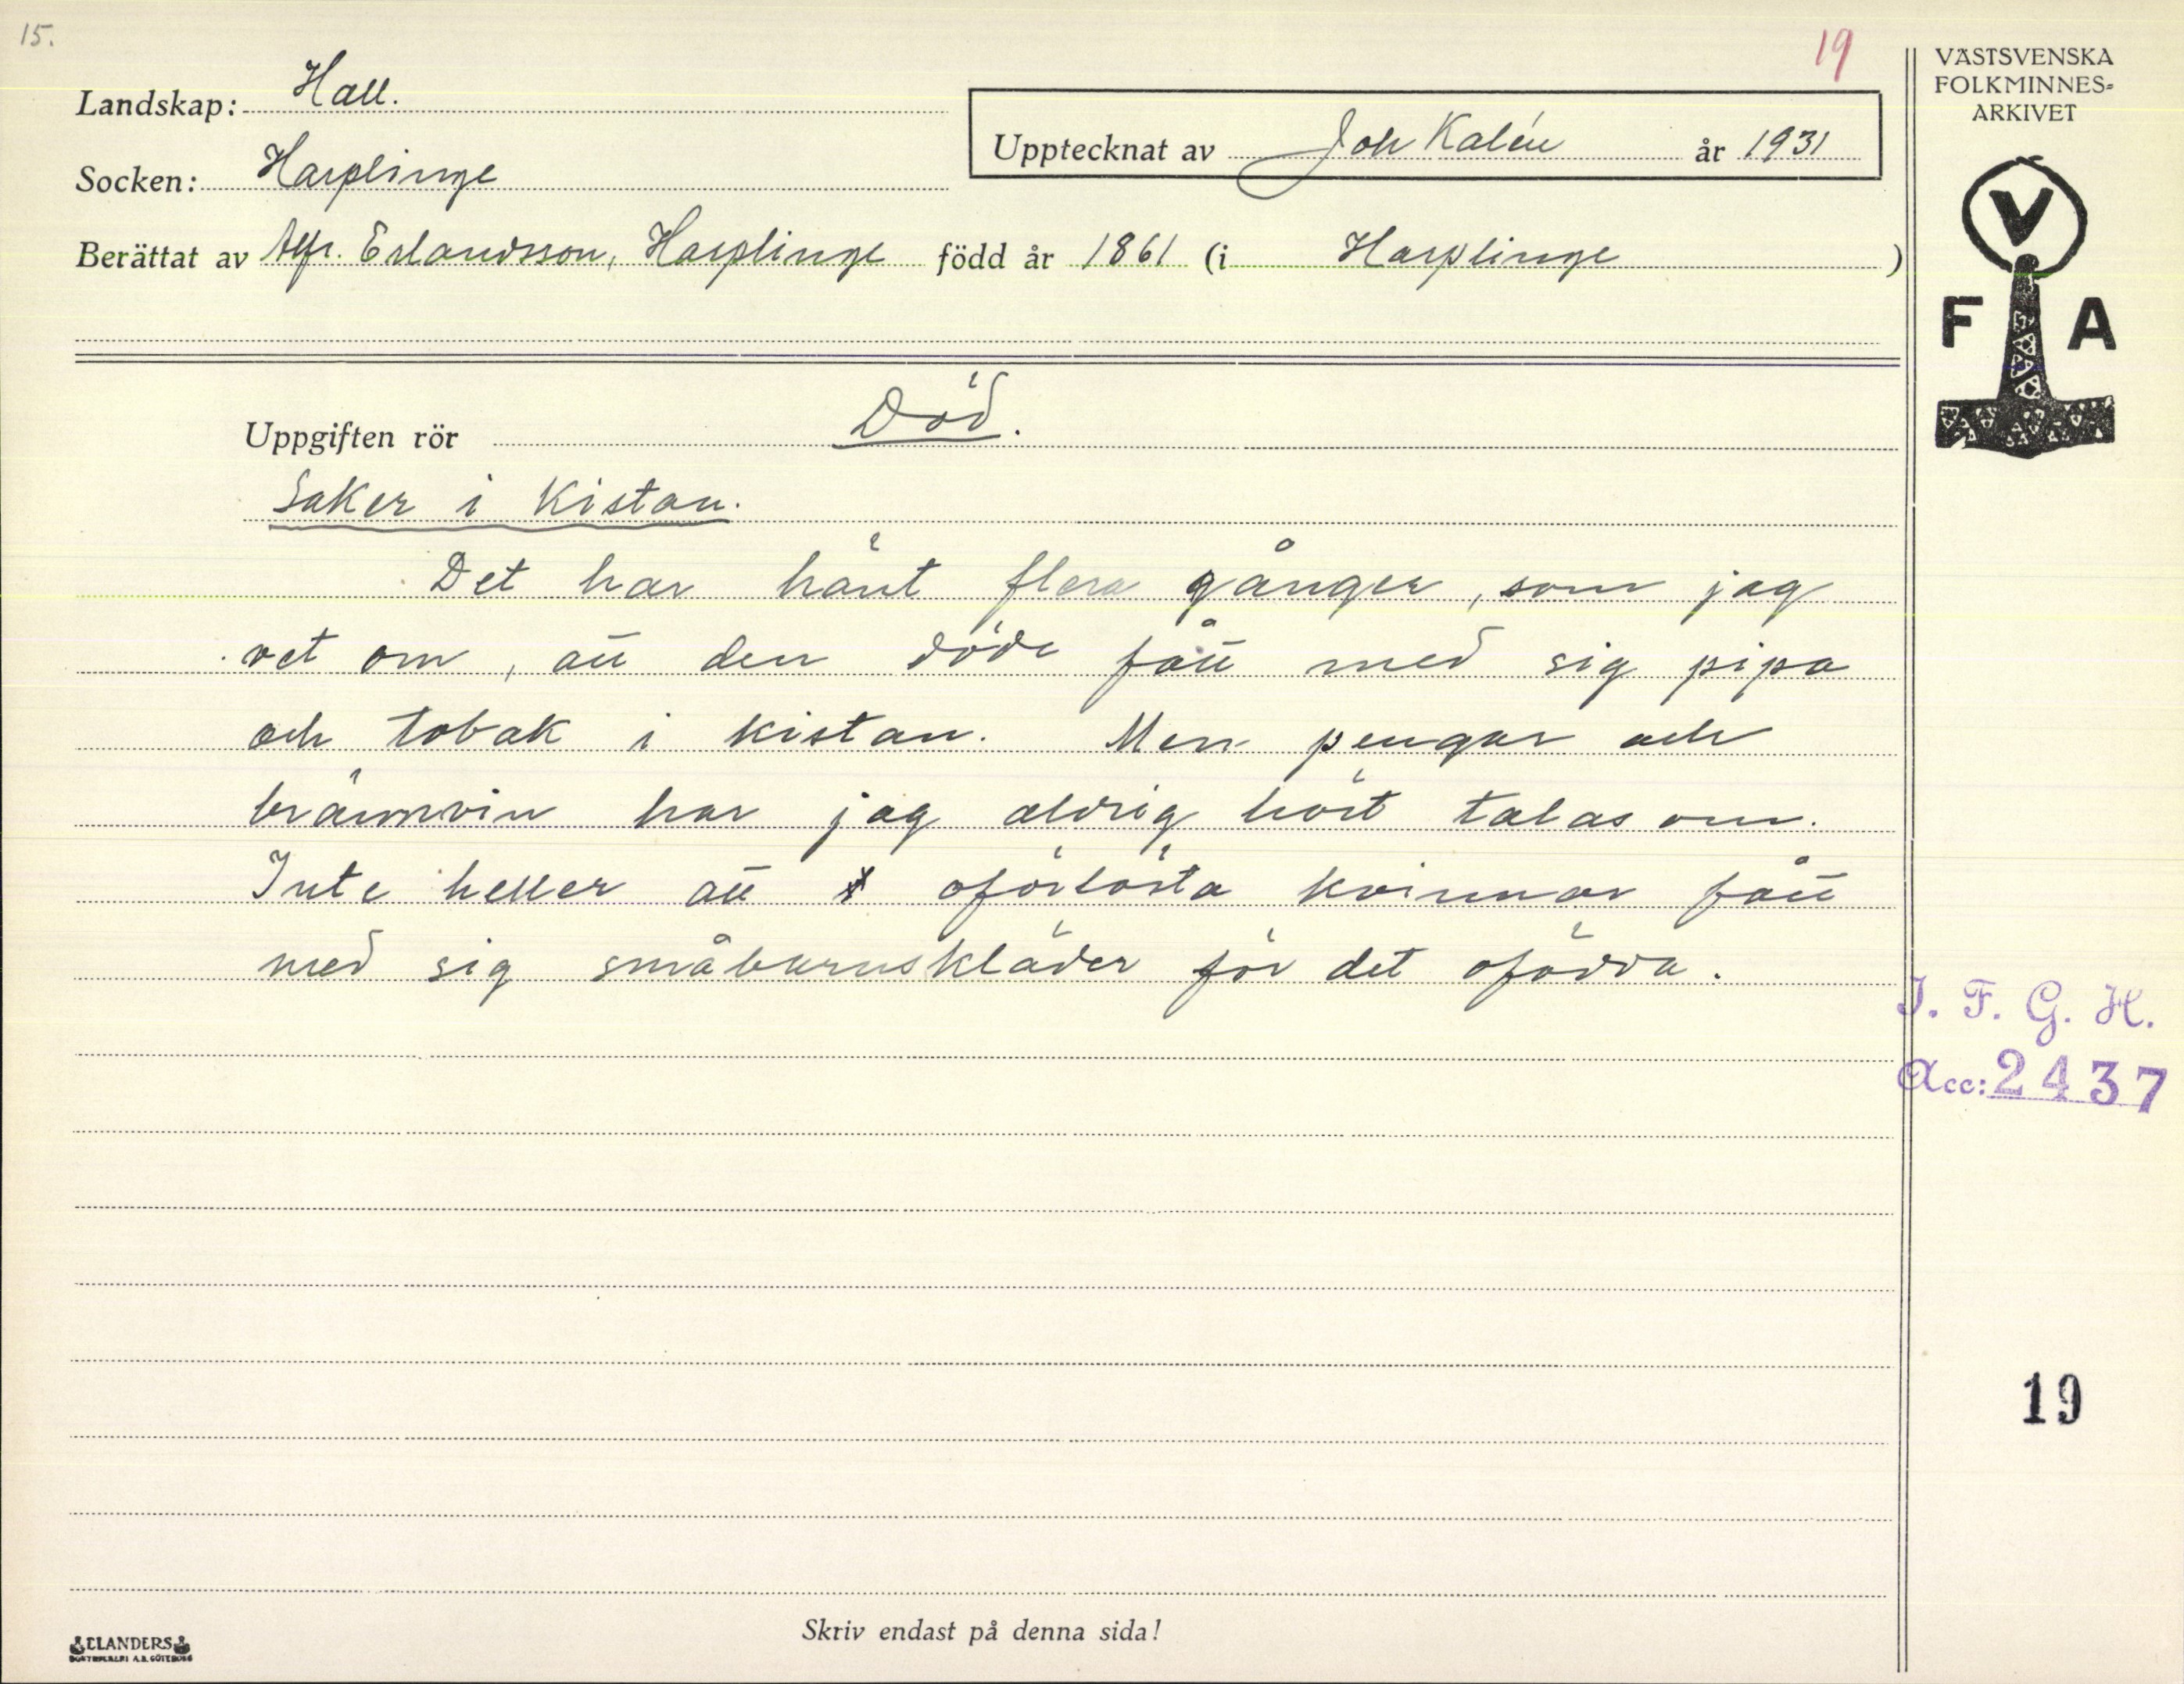 15.
19
VÄSTSVENSKA
FOLKMINNES-
ARKIVET
Landskap: Hall.
Upptecknat av Joh Kalén år 1931
Socken: Harplinge
Berättat av Alfr. Erlandsson, Harplinge född år 1861 (i Harplinge)
V
F A
Uppgiften rör Död.
Saker i kistan.
Det har hänt flera gånger, som jag
vet om, att den döde fått med sig pipa
och tobak i kistan. Men pengar och
brännvin har jag aldrig hört talas om.
Inte heller att oförlösta kvinnor fått
med sig småbarnskläder för det ofödda.
I. F. G. H.
Acc: 2437
19
Skriv endast på denna sida!
ELANDERS
BOKTRYCKERI A.B. GÖTEBORG